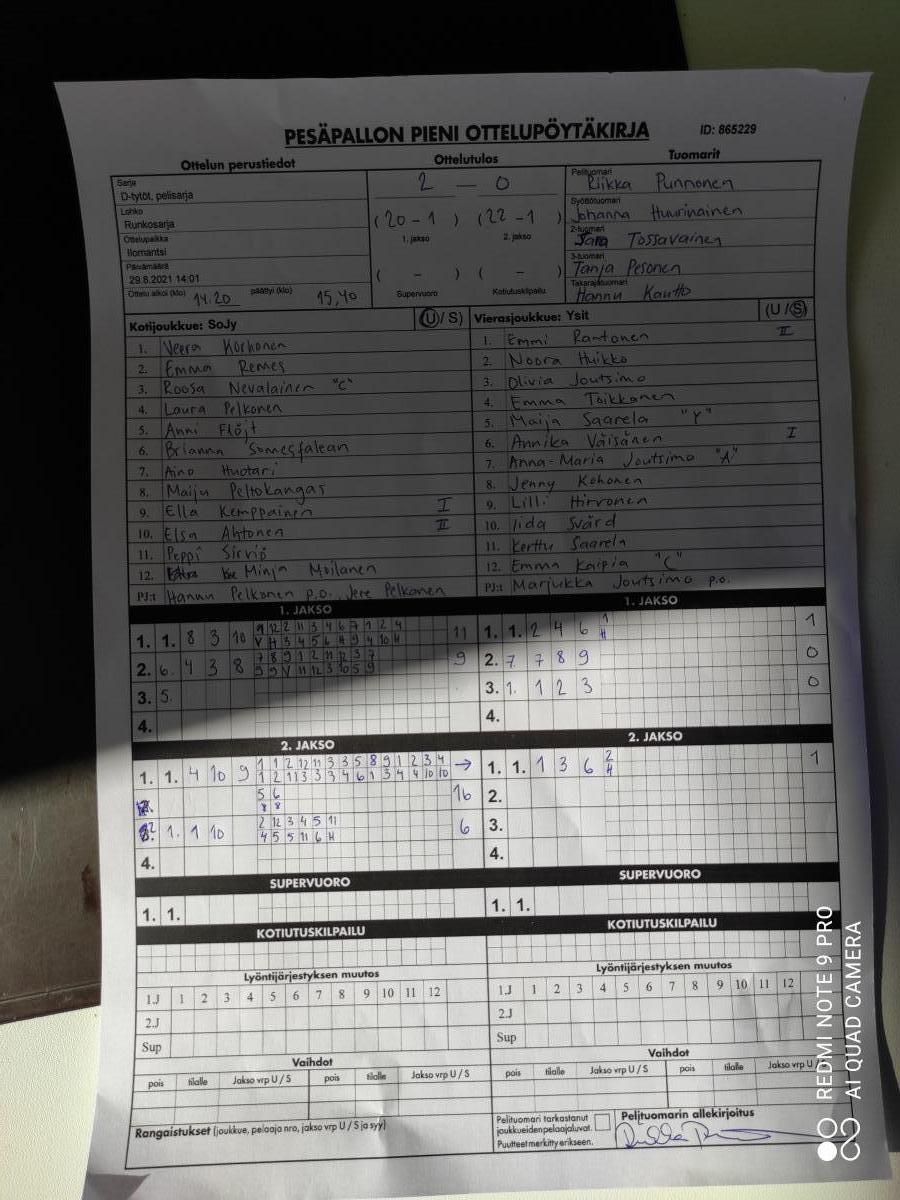 PESÄPALLON PIENI OTTELUPÖYTÄKIRJA ID: 865229
Ottelun perustiedot Ottelutulos Tuomarit
Sarja
D-tytöt, pelisarja
Lohko
Runkosarja
Ottelupaikka
Ilomantsi
Päivämäärä
29.8.2021 14:01
Ottelu alkoi (klo) 14.20 päättyi (klo) 15,40
2 — 0
(20 - 1) (22 - 1)
1. jakso 2. jakso
( - ) ( - )
Supervuoro Kotiutuskilpailu
Pelituomari
Riikka Punnonen
Syöttötuomari
Johanna Huurinainen
2-tuomari
Sara Tossavainen
3-tuomari
Tanja Pesonen
Takarajatuomari
Hannu Kautto
Kotijoukkue: SoJy (U / S)
1. Veera Korhonen
2. Emma Remes
3. Roosa Nevalainen "C"
4. Laura Pelkonen
5. Anni Flöjt
6. Brianna Somesfalean
7. Aino Huotari
8. Maiju Peltokangas
9. Ella Kemppainen I
10. Elsa Ahtonen II
11. Peppi Sirviö
12. Minja Moilanen
PJ:t Hannu Pelkonen p.o. Jere Pelkonen
Vierasjoukkue: Ysit (U / S)
1. Emmi Rantonen II
2. Noora Huikko
3. Olivia Joutsimo
4. Emma Toikkanen
5. Maija Saarela "Y"
6. Annika Väisänen I
7. Anna-Maria Joutsimo "A"
8. Jenny Kohonen
9. Lilli Hirvonen
10. Iida Svärd
11. Kerttu Saarela
12. Emma Kaipia "C"
PJ:t Marjukka Joutsimo p.o.
1. JAKSO
1. 1. 8 3 10 9 12 2 11 3 4 6 7 1 2 4 11
V H 3 4 5 6 H 9 4 10 H
2. 6. 4 3 8 7 8 9 1 2 11 12 3 7 9
9 9 V 11 12 3 10 5 9
3. 5.
4.
1. JAKSO
1. 1. 2 4 6 1 1
H
2. 7. 7 8 9 0
3. 1. 1 2 3 0
4.
2. JAKSO
1. 1. 4 10 9 1 1 2 12 11 3 3 5 8 9 1 2 3 4 →
1 2 11 3 3 3 4 6 1 3 4 4 10 10
5 6 16
8 8
2. 1. 1 10 2 12 3 4 5 11 6
4 5 5 11 6 H
4.
2. JAKSO
1. 1. 1 3 6 2 1
H
2.
3.
4.
SUPERVUORO
1. 1.
SUPERVUORO
1. 1.
KOTIUTUSKILPAILU
KOTIUTUSKILPAILU
Lyöntijärjestyksen muutos
1.J 1 2 3 4 5 6 7 8 9 10 11 12
2.J
Sup
Lyöntijärjestyksen muutos
1.J 1 2 3 4 5 6 7 8 9 10 11 12
2.J
Sup
Vaihdot
pois tilalle Jakso vrp U / S pois tilalle Jakso vrp U / S
Vaihdot
pois tilalle Jakso vrp U / S pois tilalle Jakso vrp U /
Rangaistukset (joukkue, pelaaja nro, jakso vrp U / S ja syy)
Pelituomari tarkastanut
joukkueiden pelaajaluvat.
Puutteet merkitty erikseen.
Pelituomarin allekirjoitus
REDMI NOTE 9 PRO
AI QUAD CAMERA